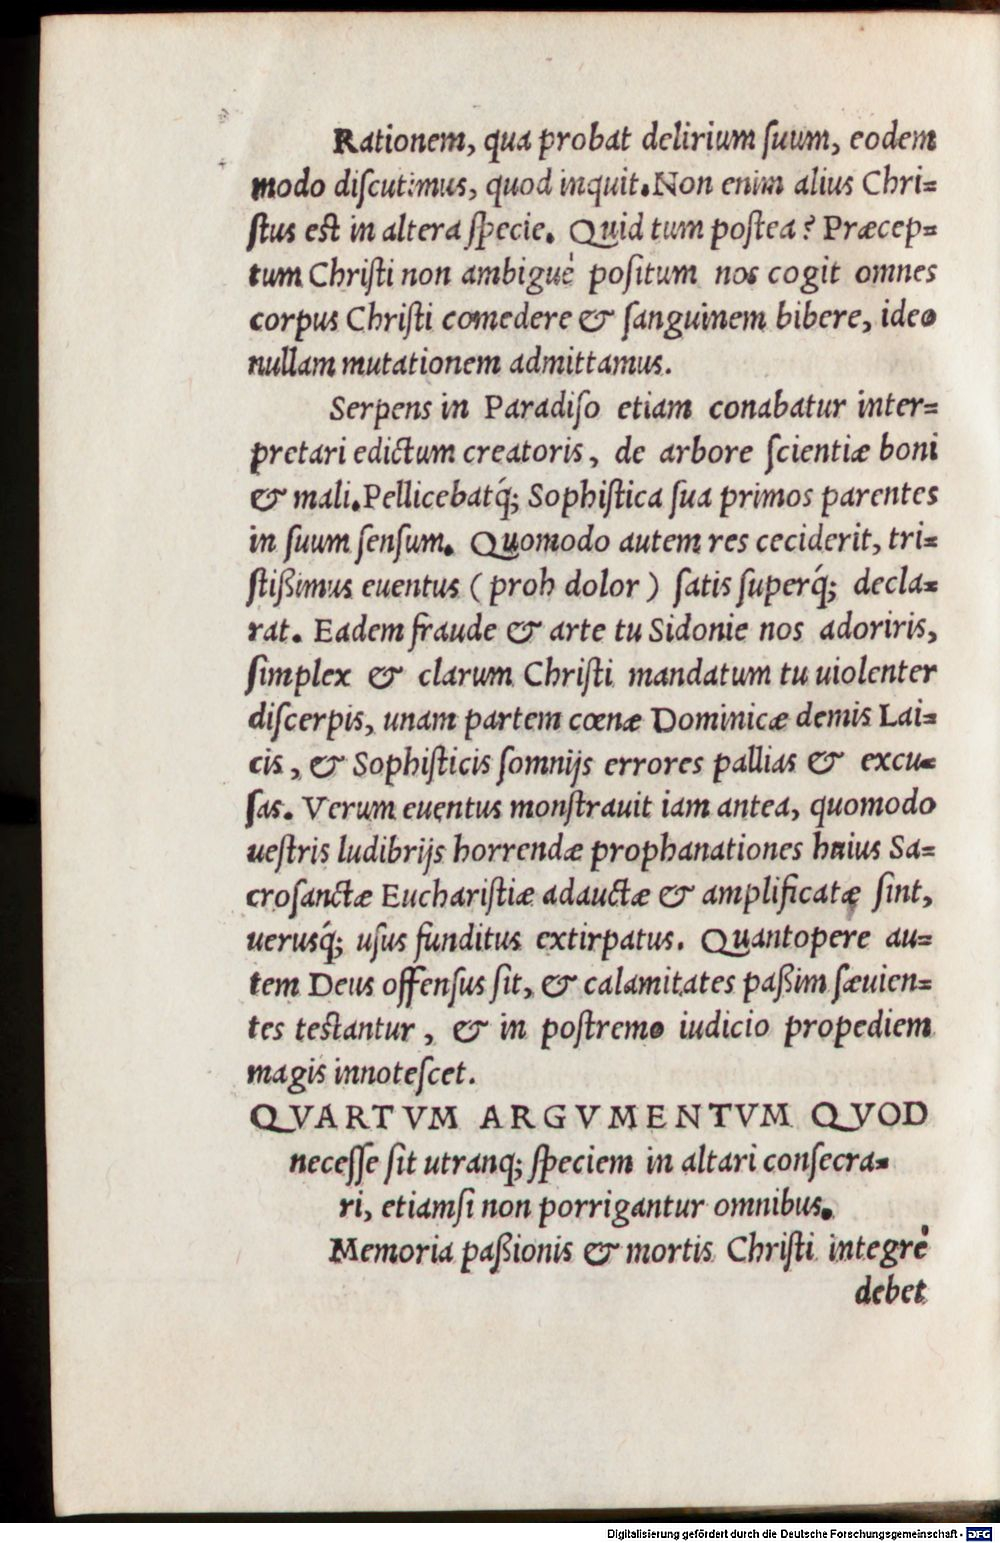 Rationem, qua probat delirium ſuum, eodem
modo diſcutimus, quod inquit. Non enim alius Chri=
ſtus est in altera ſpecie. Quid tum poſtea? Præcep=
tum Chriſti non ambiguè poſitum nos cogit omnes
corpus Chriſti comedere & ſanguinem bibere, ideo
nullam mutationem admittamus.
Serpens in Paradiſo etiam conabatur inter=
pretari edictum creatoris, de arbore ſcientiæ boni
& mali. Pellicebatq́; Sophiſtica ſua primos parentes
in ſuum ſenſum. Quomodo autem res ceciderit, tri=
ſtißimus euentus (proh dolor) ſatis ſuperq́; decla=
rat. Eadem fraude & arte tu Sidonie nos adoriris,
ſimplex & clarum Chriſti mandatum tu uiolenter
diſcerpis, unam partem cœnæ Dominicæ demis Lai=
cis, & Sophiſticis ſomnijs errores pallias & excu=
ſas. Verum euentus monſtrauit iam antea, quomodo
ueſtris ludibrijs horrendæ prophanationes huius Sa=
croſanctæ Euchariſtiæ adauctæ & amplificatæ ſint,
uerusq́; uſus funditus extirpatus. Quantopere au=
tem Deus offenſus ſit, & calamitates paßim ſæuien=
tes testantur, & in poſtremo iudicio propediem
magis innoteſcet.
QVARTVM ARGVMENTVM QVOD
neceſſe ſit utranq; ſpeciem in altari conſecra=
ri, etiamſi non porrigantur omnibus.
Memoria paßionis & mortis Chriſti integrè
debet
Digitalisierung gefördert durch die Deutsche Forschungsgemeinschaft - DFG